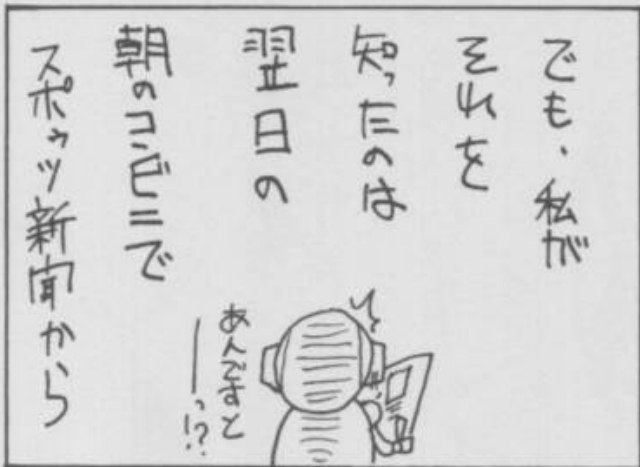 でも、私が
それを
知ったのは
翌日の
朝のコンビニで
スポゥツ新聞から
あんですと
ーっ!?